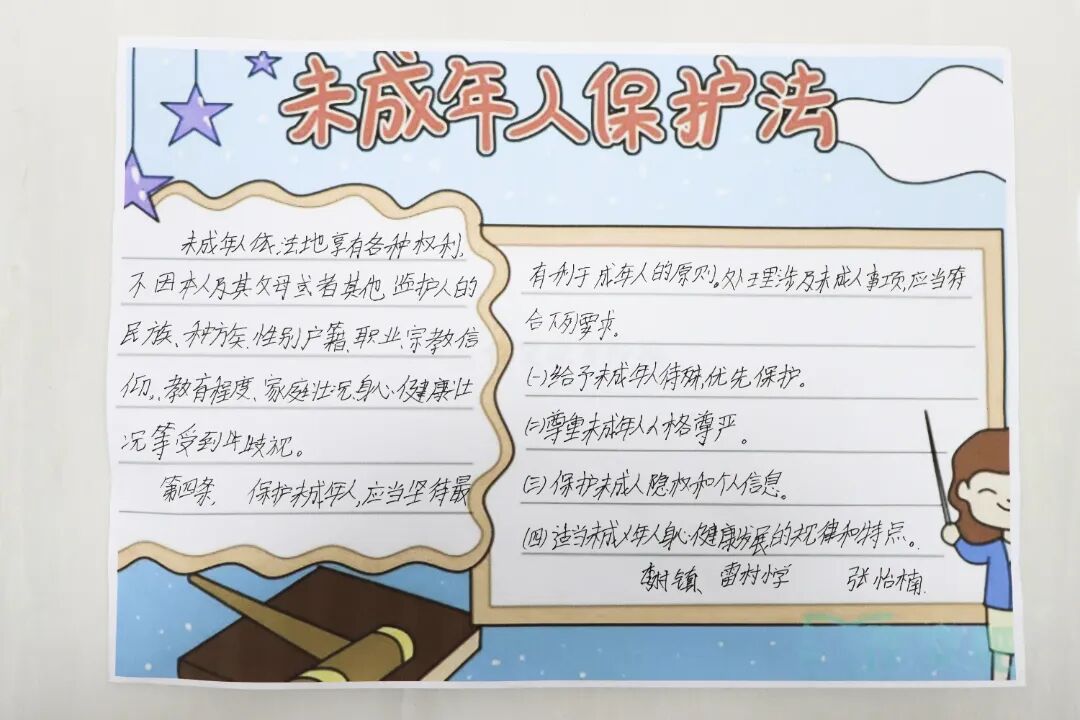 未成年人保护法
未成年人依法地享有各种权利,
不因本人及其父母或者其他监护人的
民族、种族、性别户籍、职业、宗教信
仰、教育程度、家庭壮况、身心健康壮
况等受到歧视。
第四条, 保护未成年人,应当坚持最
有利于成年人的原则。处理涉及未成人事项,应当符
合下列要求。
(一)给予未成年人特殊,优先保护。
(二)尊重未成年人人格尊严。
(三)保护未成人隐权和个人信息。
(四)适当未成年人身心健康发展的规律和特点。
李村镇、雷村小学 张怡楠